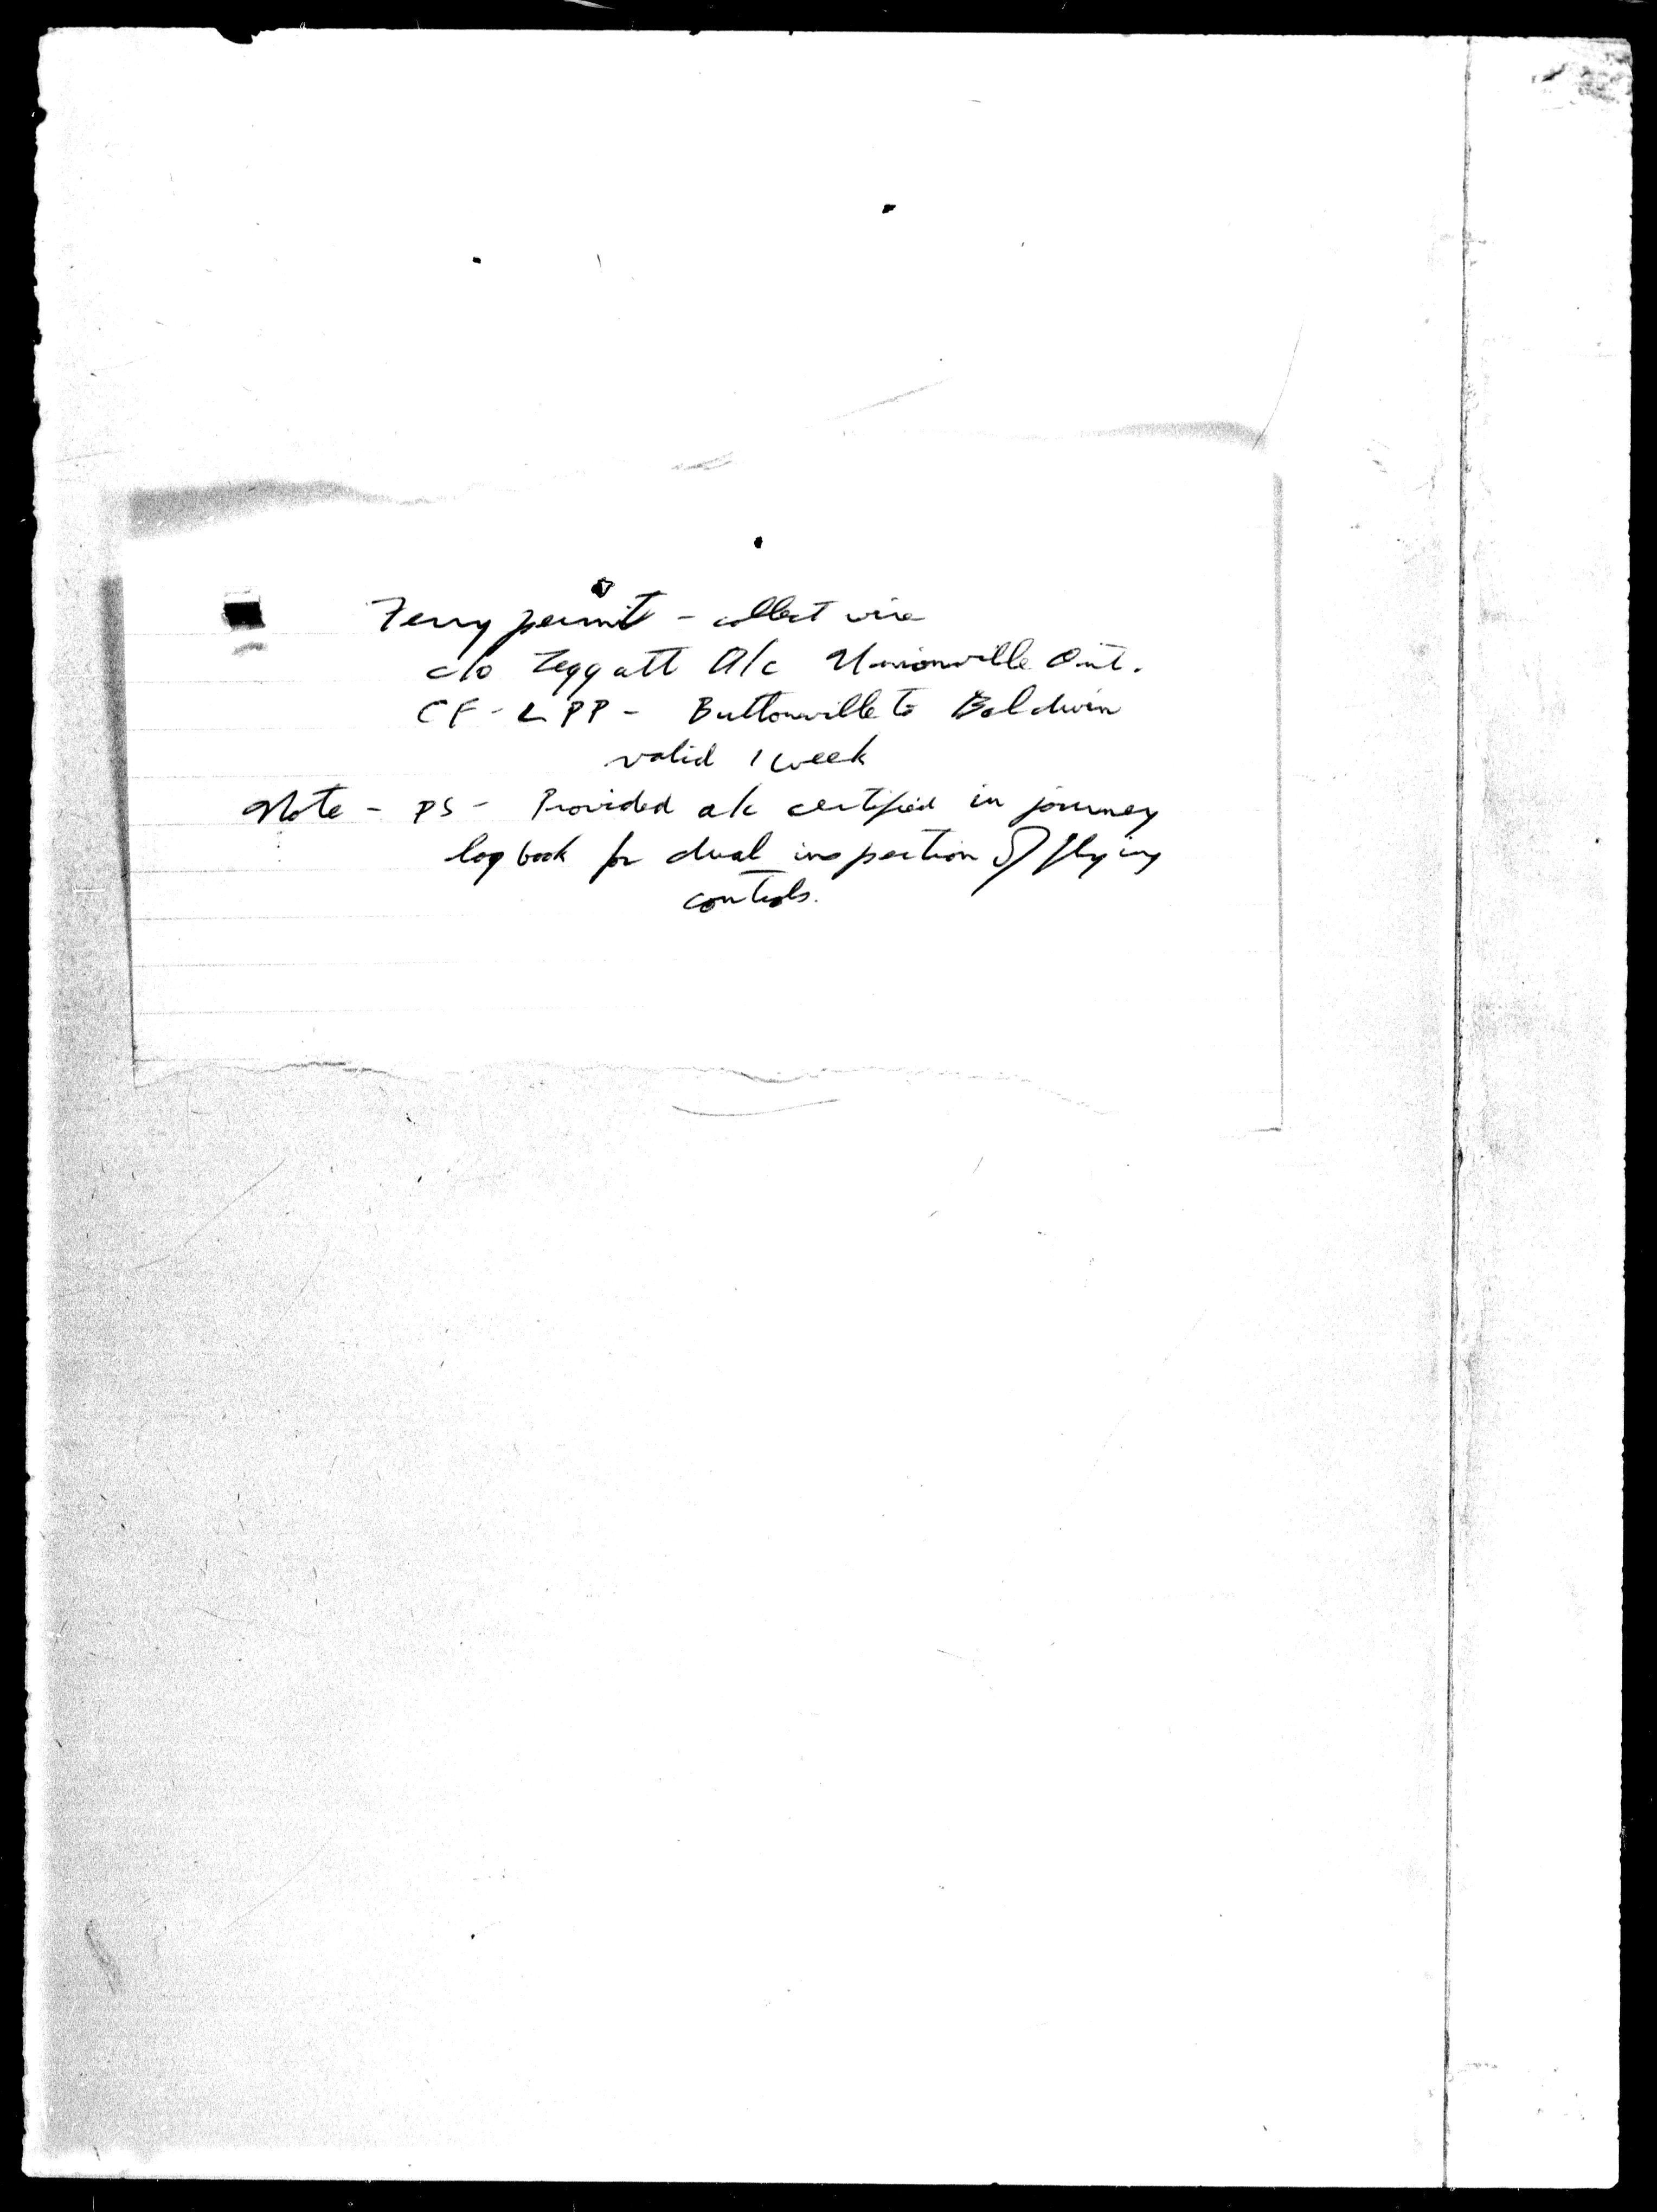 Ferry permit - collect wire
c/o Leggatt A/c Unionville Ont.
CF-LPP - Buttonville to Baldwin
valid 1 week
Note - PS - Provided a/c certified in journey
log book for dual inspection of flying
controls.